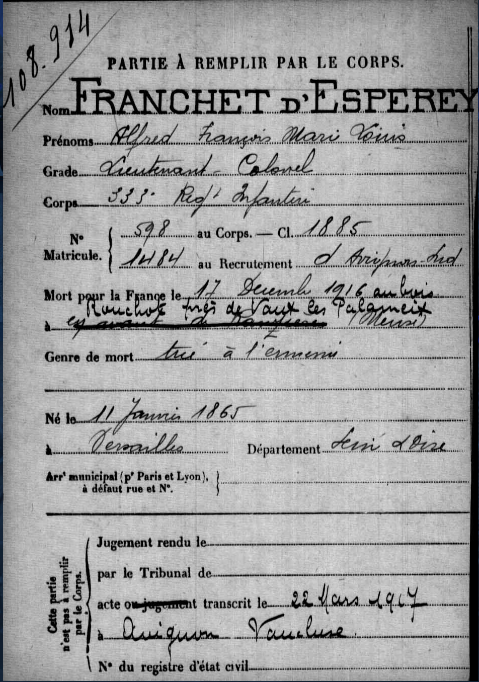 108.914
PARTIE À REMPLIR PAR LE CORPS.
Nom FRANCHET D'ESPEREY
Prénoms Alfred François Marie Louis
Grade Lieutenant-Colonel
Corps 333e Regt Infanterie
N° Matricule. { 598 au Corps. — Cl. 1885
1484 au Recrutement d'Avignon-Sud
Mort pour la France le 17 Decemb 1916 au bois
Rouchot près de Vaux les Palameix
à en avant de (Meuse)
Genre de mort tué à l'ennemi
Né le 11 Janvier 1865
à Versailles Département Seine & Oise
Arrt municipal (pr Paris et Lyon),
à défaut rue et N°.
Cette partie n'est pas à remplir par le Corps.
Jugement rendu le
par le Tribunal de
acte ou jugement transcrit le 22 Mars 1917
à Avignon Vaucluse.
N° du registre d'état civil